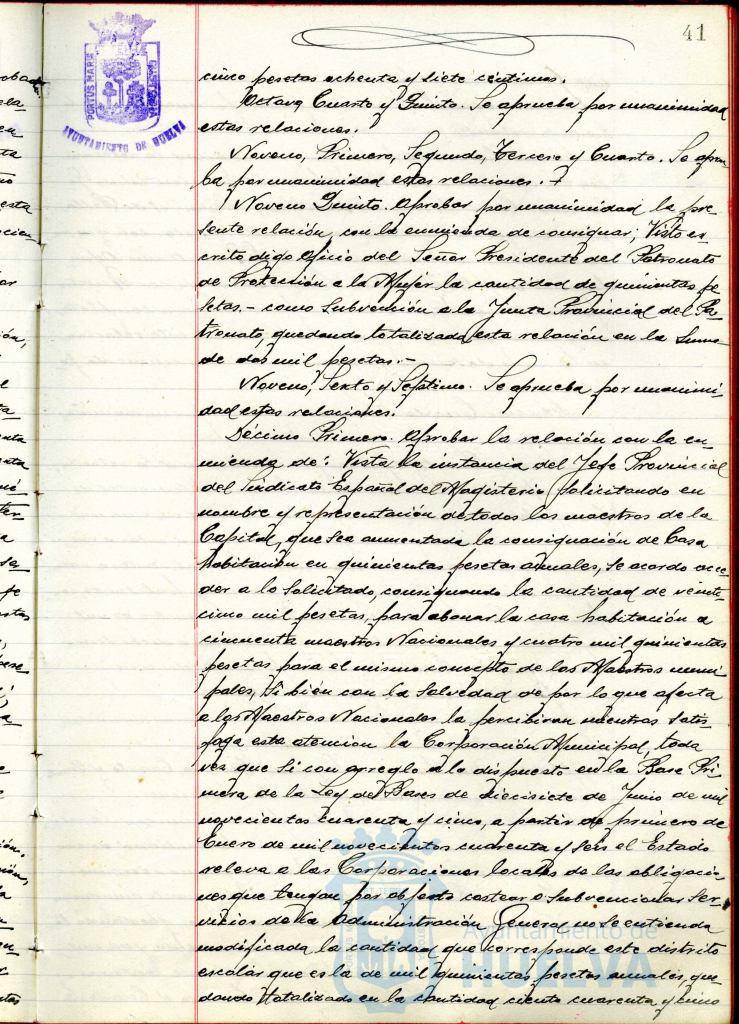 41
PORTUS MARIS
AYUNTAMIENTO DE HUELVA
cinco pesetas ochenta y siete céntimos.
Octavo, Cuarto y Quinto. Se aprueba por unanimidad
estas relaciones.
Noveno, Primero, Segundo, Tercero y Cuarto. Se aprue-
ba por unanimidad estas relaciones.
Noveno Quinto. Aprobar por unanimidad la pre-
sente relación, con la enmienda de consignar; Visto es-
crito digo oficio del Señor Presidente del Patronato
de Protección a la Mujer la cantidad de quinientas pe
setas.- como subvención a la Junta Provincial del Pa-
tronato, quedando totalizada esta relación en la suma
de dos mil pesetas.-
Noveno, Sexto y Séptimo. Se aprueba por unanimi-
dad estas relaciones.
Décimo Primero. Aprobar la relación con la en-
mienda de: Vista la instancia del Jefe Provincial
del Sindicato Español del Magisterio, solicitando en
nombre y representación de todos los maestros de la
Capital, que sea aumentada la consignación de Casa
habitación en quinientas pesetas anuales, se acordo acce-
der a lo solicitado, consignando la cantidad de veinti-
cinco mil pesetas, para abonar la casa habitación a
cincuenta maestros Nacionales y cuatro mil quinientas
pesetas para el mismo concepto de los Maestros muni-
pales, si bién con la salvedad de por lo que afecta
a los Maestros Nacionales la percibiran mientras satis-
faga esta atencion la Corporación Municipal, toda
vez que si con arreglo a lo dispuesto en la Base Pri-
mera de la Ley de Bases de diecisiete de Junio de mil
novecientos cuarenta y cinco, a partir de primero de
Enero de mil novecientos cuarenta y seis el Estado
releva a las Corporaciones locales de las obligacio-
nes que tengan por objeto costear o subvencionar ser-
vicios de la Administración General no se entienda
modificada la cantidad que corresponde este distrito
escolar que es la de mil quinientas pesetas anuales, que-
dando totalizado en la cantidad ciento cuarenta y cinco
Ayuntamiento de
HUELVA